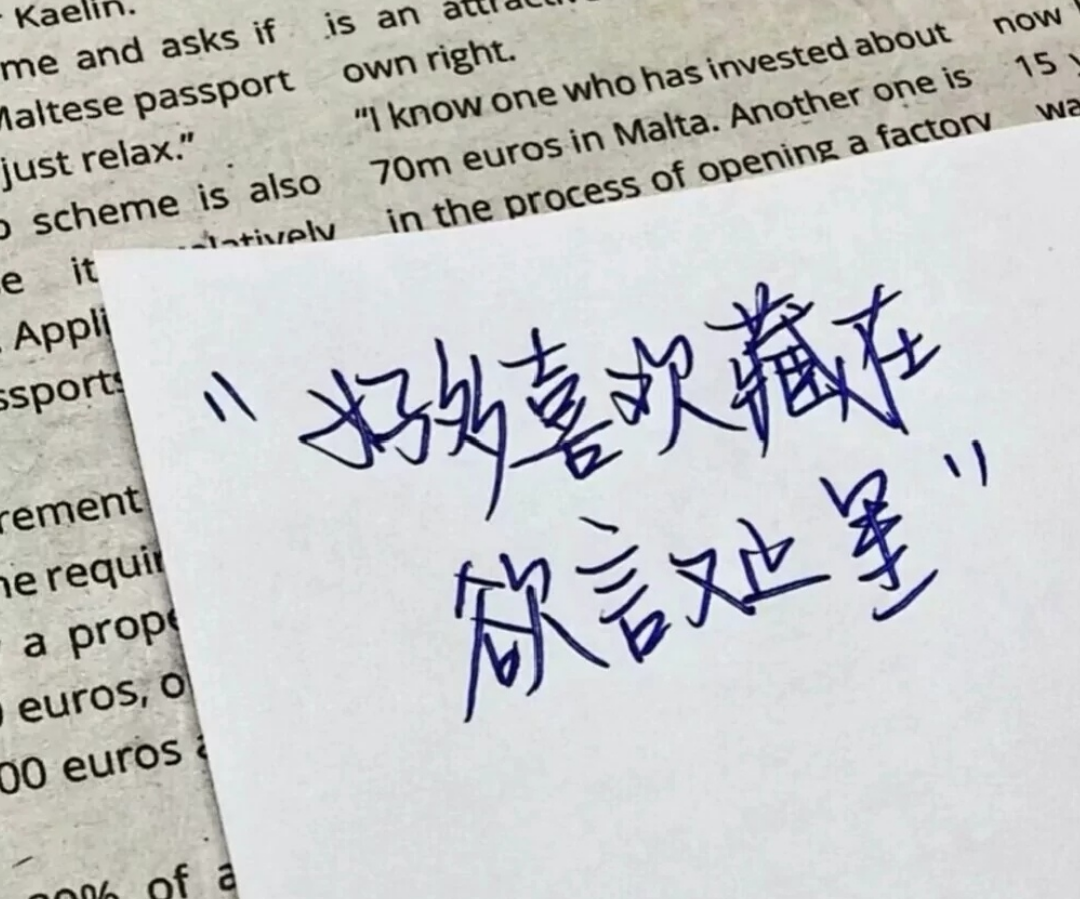 Kaelin.
me and asks if
Maltese passport
just relax."
scheme is also
relatively
e it
Appli
ssports
rement
ne requir
a prope
euros, o
00 euros
is an
own right.
"I know one who has invested about
70m euros in Malta. Another one is
in the process of opening a factory
now
15
wa
"好多喜欢藏在
欲言又止里"
of a